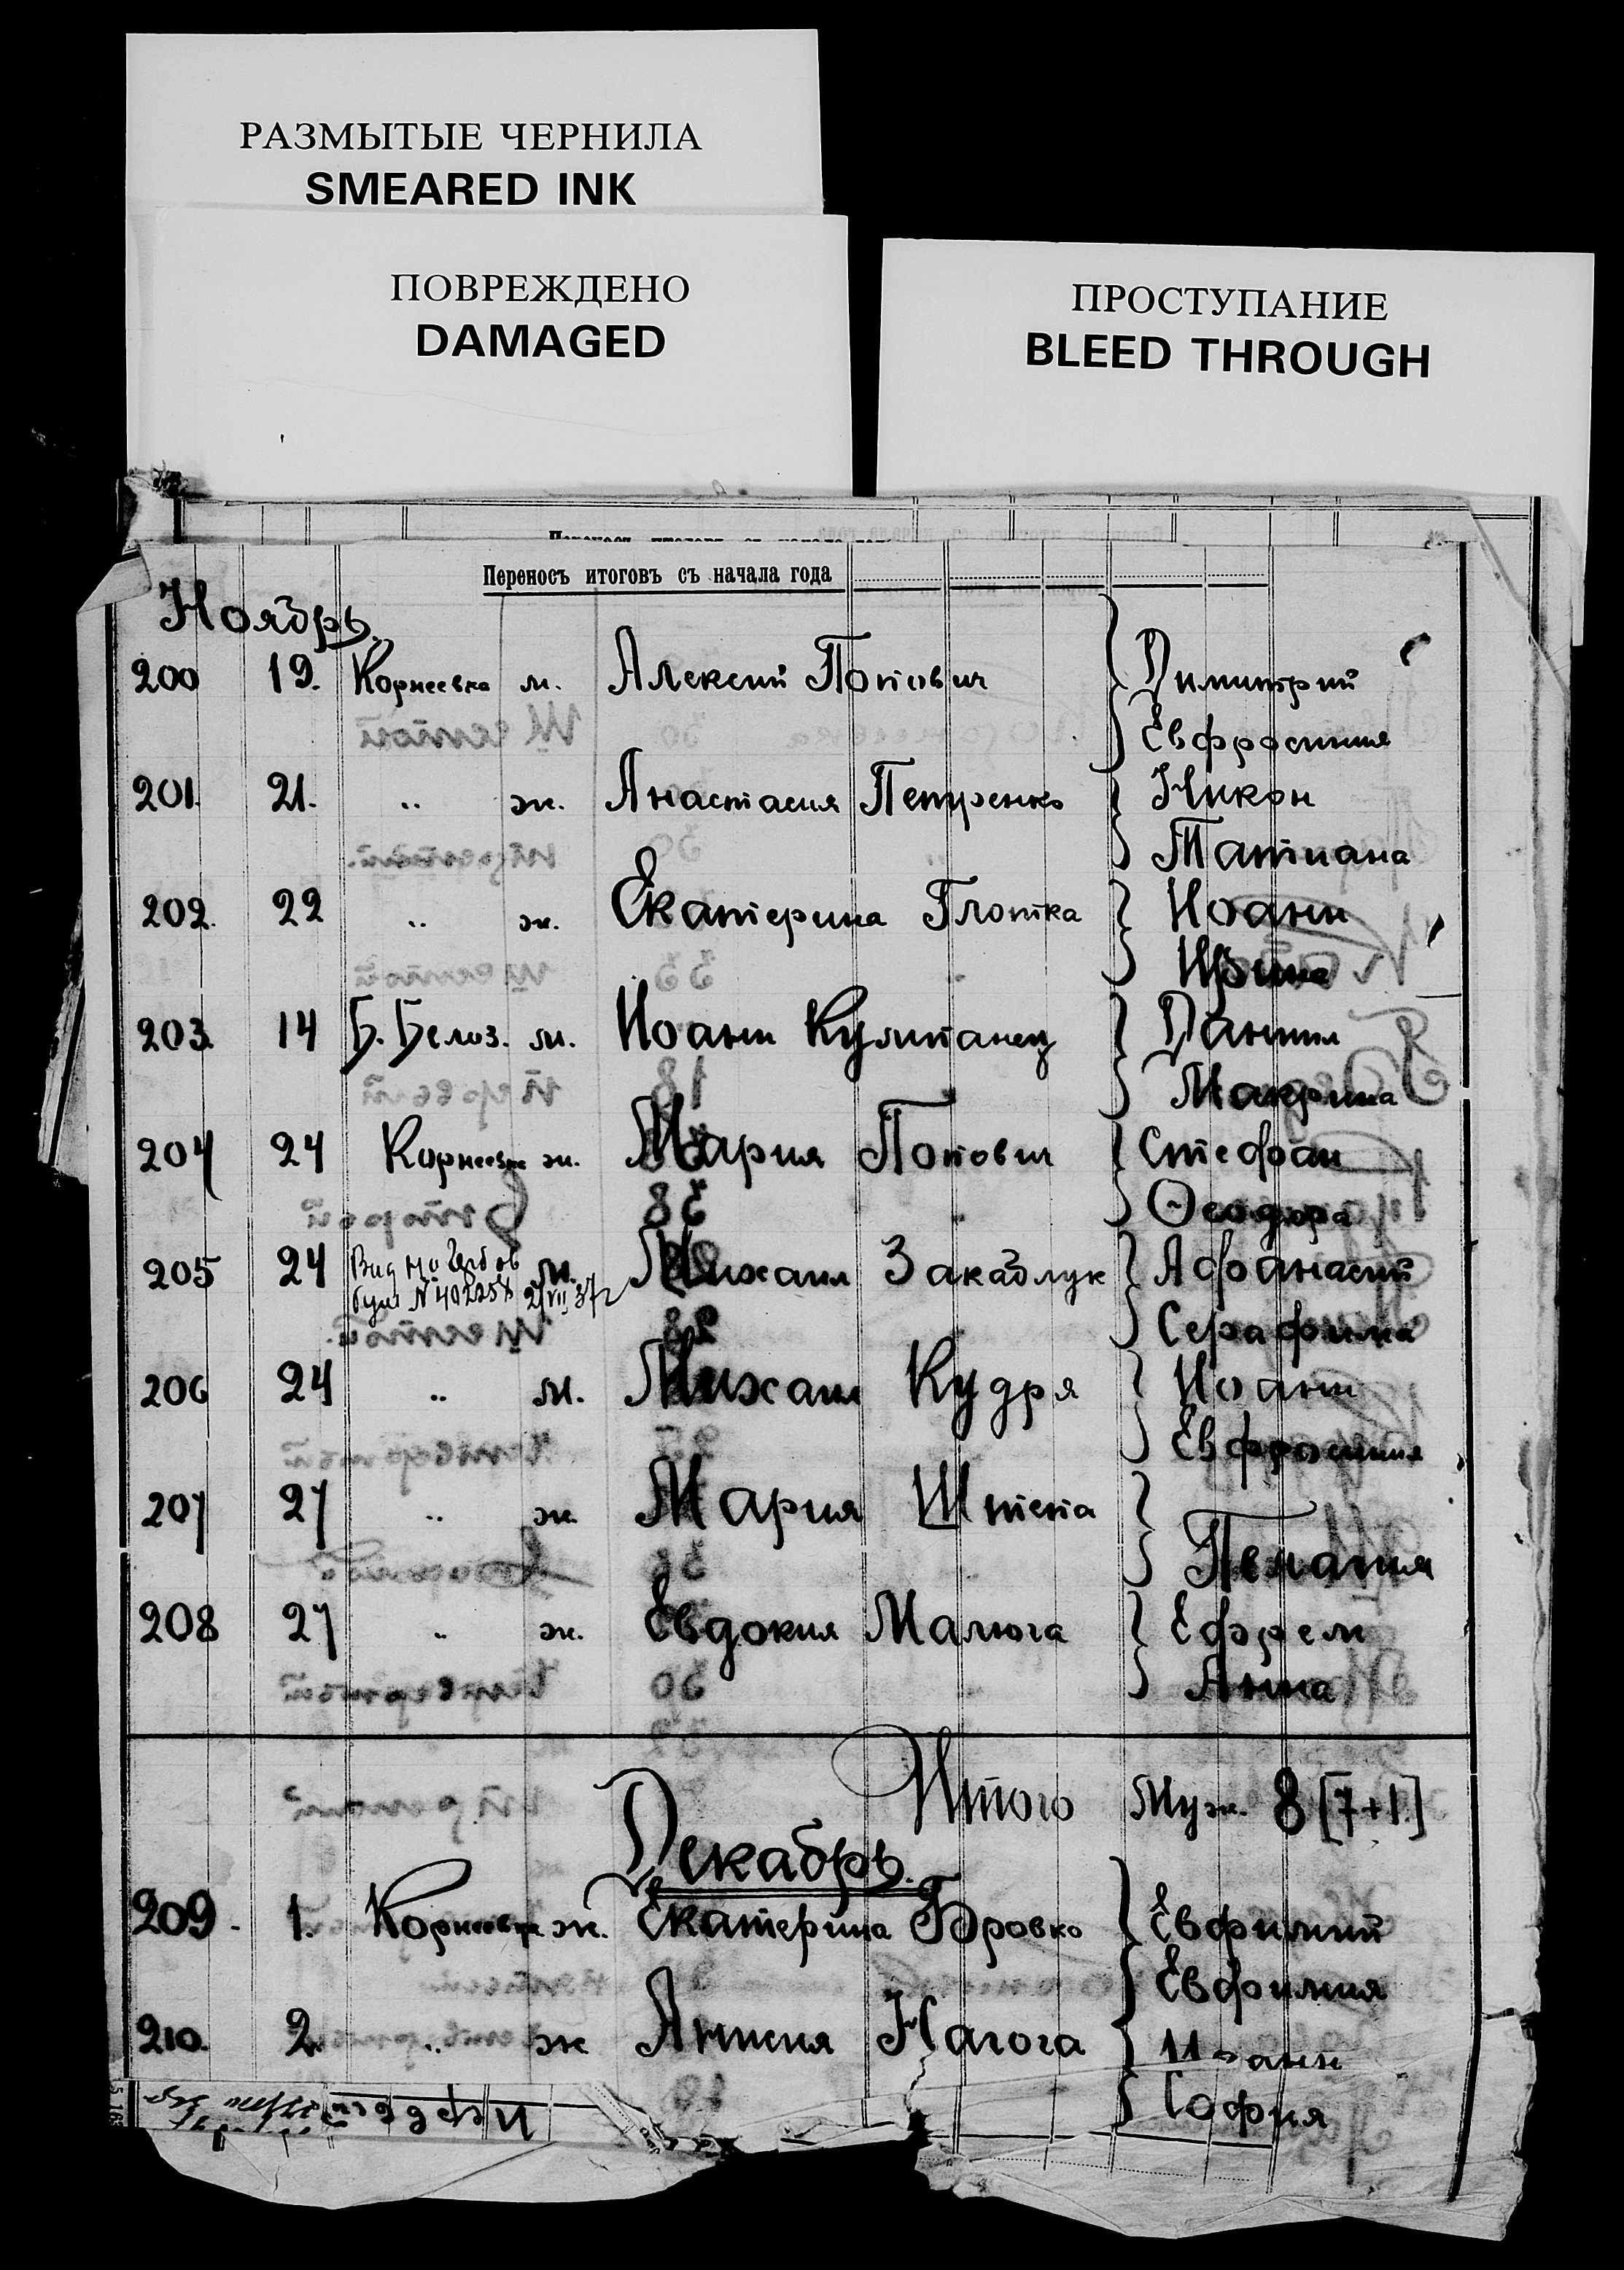 РАЗМЫТЫЕ ЧЕРНИЛА
SMEARED INK
ПОВРЕЖДЕНО
DAMAGED
ПРОСТУПАНИЕ
BLEED THROUGH
Переносъ итоговъ съ начала года
Ноябрь
200 19. Корнеевка м. Алексий Попович } Димитрий
Евфросиния
201. 21. „ ж. Анастасия Петренко } Никон
Татиана
202. 22 „ ж. Екатерина Глотка } Иоанн
Ирина
203. 14 Б. Белоз. м. Иоанн } Даниил
Макрина
204 24 Корнеевка ж. Мария Попович } Стефан
Ѳеодора
205 24 м. Михаил Закаблук } Афанасий
№ 402258 2/VII 37г
Серафима
206 24 „ м. Михаил Кудря } Иоанн
Евфросиния
207 27 „ ж. Мария Штепа }
Пелагия
208 27 „ ж. Евдокия Малюга } Ефрем
Анна
Итого Муж. 8 [7+1]
Декабрь.
209. 1. Корнеевка ж. Екатерина Бровко } Евфимий
Евфимия
210. 2. „ ж Анисия Нагога } Иоанн
София